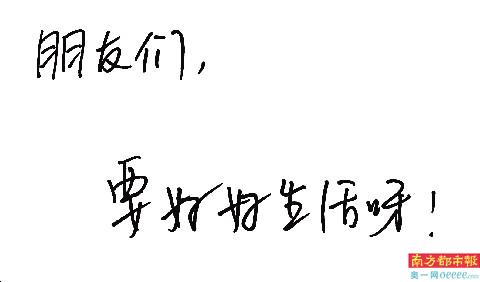 朋友们，
要好好生活呀！
南方都市報
奥一网oeeee.com